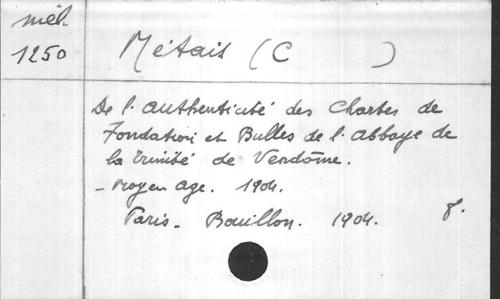 mél.
1250
Métais (C )
De l'authenticité des Chartes de
Fondation et Bulles de l'Abbaye de
la Trinité de Vendôme.
- Moyen Age. 1904.
Paris. Bouillon. 1904. 8.